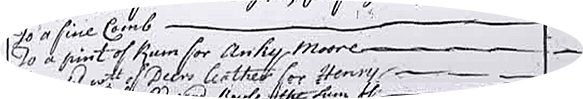 To a fine Comb
To a pint of Rum for Anky Moore
wt of Deers leather for Henry
the Sum